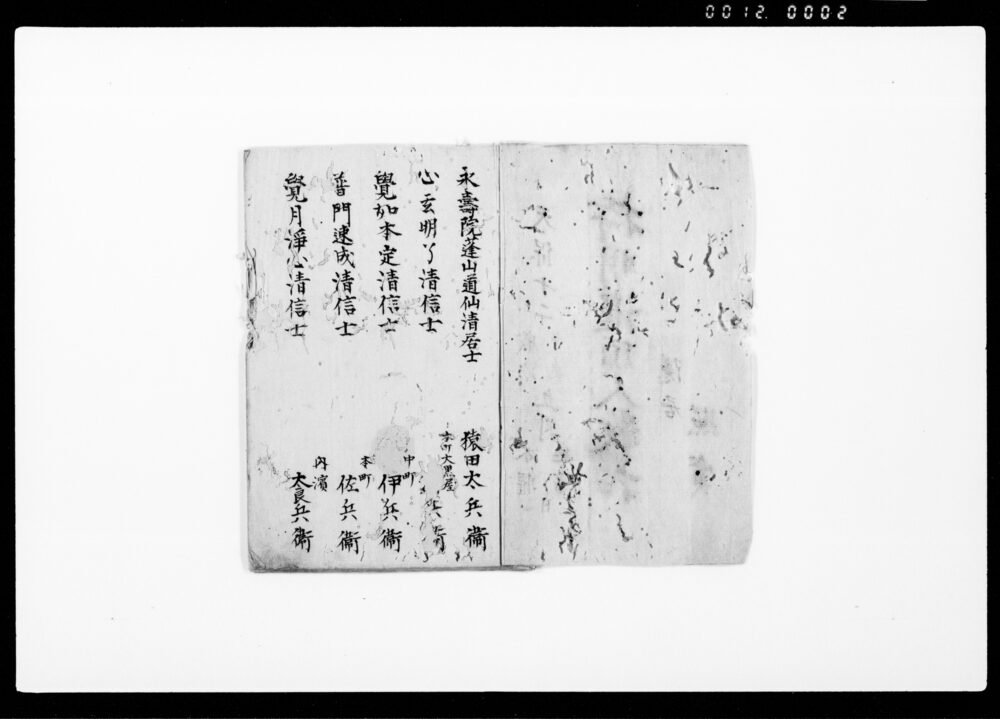 0012. 0002
永壽院蓬山道仙清居士
猿田太兵衞
心玄明了清信士
本町大黒屋
兵衞
覺如本定清信士
中町
伊兵衞
普門速成清信士
本町
佐兵衞
覺月淨心清信士
内濱
太良兵衞